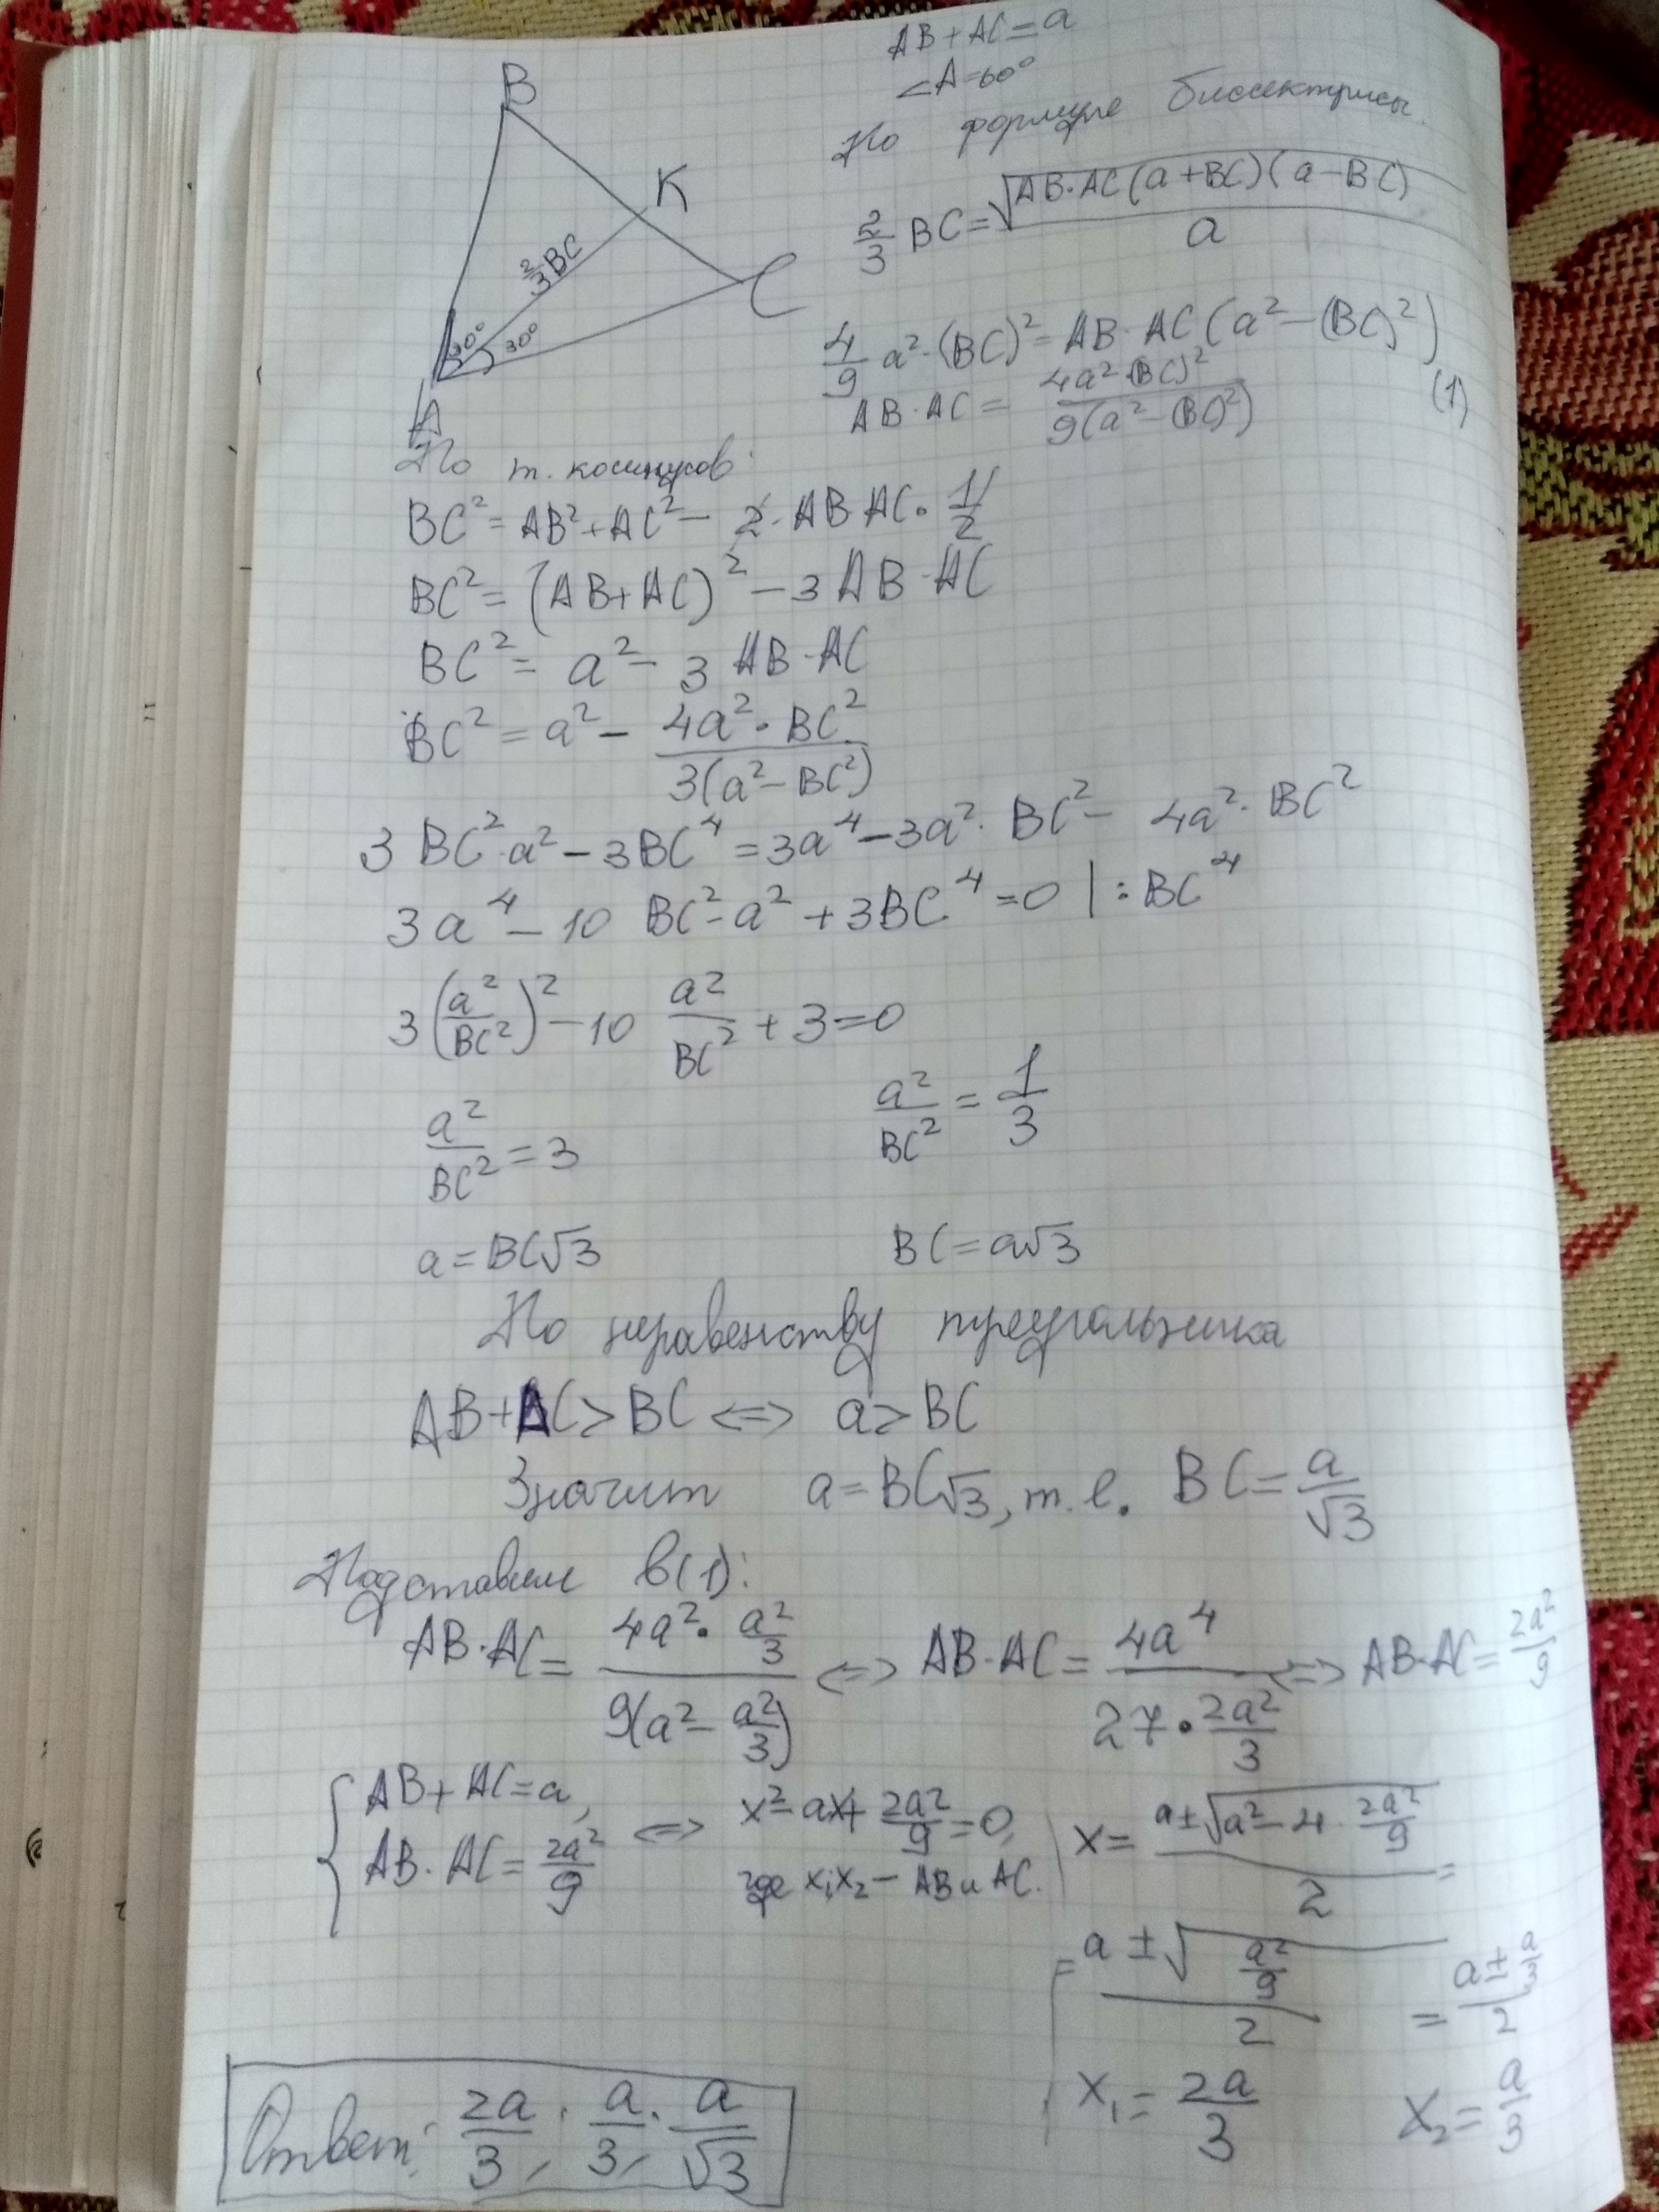 AB + AC = a
∠A = 60°
По формуле биссектрисы.
2/3 BC = √(AB·AC(a+BC)(a−BC)) / a
4/9 a²·(BC)² = AB·AC(a²−(BC)²)
AB·AC = 4a²·(BC)² / 9(a²−(BC)²) (1)
B
K
C
A
2/3 BC
30°
30°
По т. косинусов:
BC² = AB² + AC² − 2·AB·AC·1/2
BC² = (AB+AC)² − 3AB·AC
BC² = a² − 3AB·AC
BC² = a² − 4a²·BC² / 3(a²−BC²)
3BC²·a² − 3BC⁴ = 3a⁴ − 3a²·BC² − 4a²·BC²
3a⁴ − 10 BC²·a² + 3BC⁴ = 0 | : BC⁴
3(a²/BC²)² − 10 a²/BC² + 3 = 0
a²/BC² = 3 a²/BC² = 1/3
a = BC√3 BC = a√3
По неравенству треугольника
AB + AC > BC <=> a > BC
Значит a = BC√3, т.е. BC = a/√3
Подставим в (1):
AB·AC = 4a²·a²/3 / 9(a²−a²/3) <=> AB·AC = 4a⁴ / 27·2a²/3 <=> AB·AC = 2a²/9
{ AB + AC = a, AB·AC = 2a²/9 <=> x² − ax + 2a²/9 = 0,
где x₁x₂ − AB и AC.
x = (a ± √(a² − 4·2a²/9)) / 2 =
= (a ± √(a²/9)) / 2 = (a ± a/3) / 2
x₁ = 2a/3 x₂ = a/3
Ответ: 2a/3; a/3; a/√3